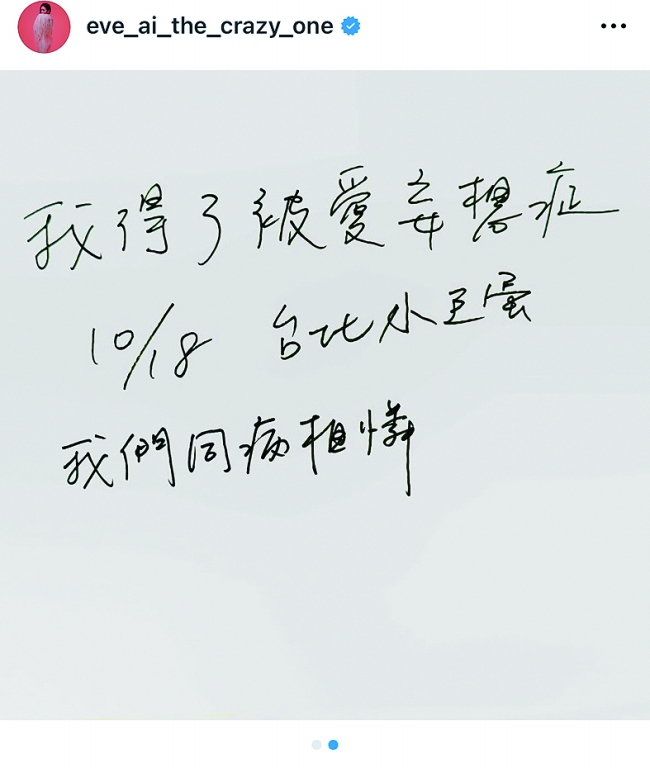 eve_ai_the_crazy_one
我得了被愛妄想症
10/18 台北小巨蛋
我們同病相憐